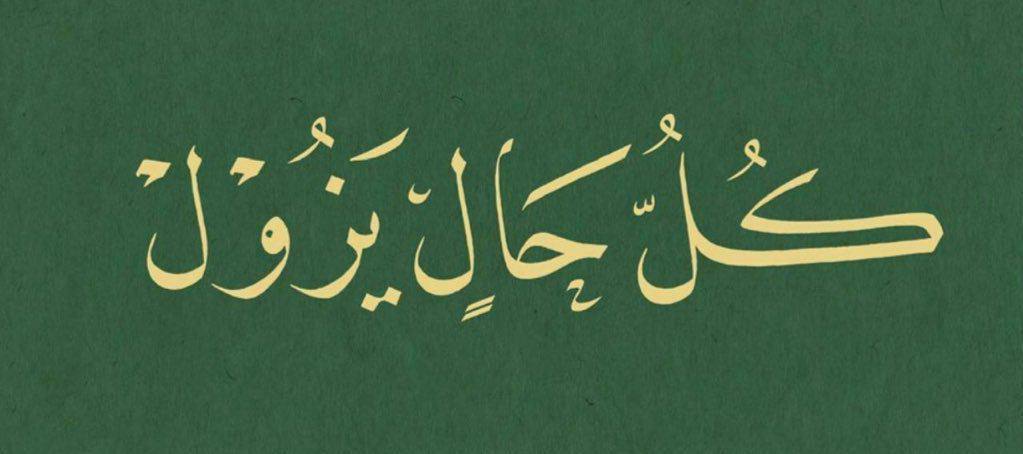 كُلُّ حَالٍ يَزُوْلْ